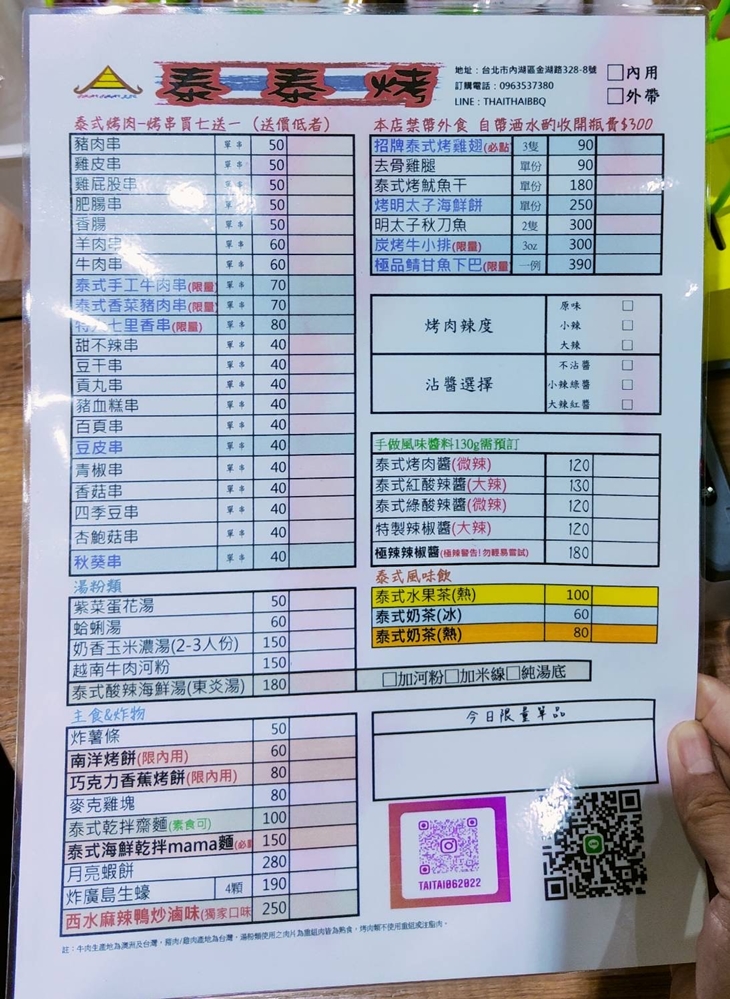 泰泰烤
地址：台北市內湖區金湖路328-8號
訂購電話：0963537380
LINE：THAITHAIBBQ
□內用
□外帶
泰式烤肉-烤串買七送一 (送價低者)
豬肉串 單串 50
雞皮串 單串 50
雞屁股串 單串 50
肥腸串 單串 50
香腸 單串 50
羊肉串 單串 60
牛肉串 單串 60
泰式手工牛肉串(限量) 單串 70
泰式香菜豬肉串(限量) 單串 70
七里香串(限量) 單串 80
甜不辣串 單串 40
豆干串 單串 40
貢丸串 單串 40
豬血糕串 單串 40
百頁串 單串 40
豆皮串 單串 40
青椒串 單串 40
香菇串 單串 40
四季豆串 單串 40
杏鮑菇串 單串 40
秋葵串 單串 40
湯粉類
紫菜蛋花湯 50
蛤蜊湯 60
奶香玉米濃湯(2-3人份) 150
越南牛肉河粉 150
泰式酸辣海鮮湯(東炎湯) 180 □加河粉□加米線□純湯底
主食&炸物
炸薯條 50
南洋烤餅(限內用) 60
巧克力香蕉烤餅(限內用) 80
麥克雞塊 80
泰式乾拌齋麵(素食可) 100
泰式海鮮乾拌mama麵(必 150
月亮蝦餅 280
炸廣島生蠔 4顆 190
西水麻辣鴨炒滷味(獨家口味 250
本店禁帶外食 自帶酒水酌收開瓶費$300
招牌泰式烤雞翅(必點) 3隻 90
去骨雞腿 單份 90
泰式烤魷魚干 單份 180
烤明太子海鮮餅 單份 250
明太子秋刀魚 2隻 300
炭烤牛小排(限量) 3oz 300
極品鯖甘魚下巴(限量 一例 390
烤肉辣度
原味 □
小辣 □
大辣 □
沾醬選擇
不沾醬 □
小辣綠醬 □
大辣紅醬 □
手做風味醬料130g需預訂
泰式烤肉醬(微辣) 120
泰式紅酸辣醬(大辣) 130
泰式綠酸辣醬(微辣) 120
特製辣椒醬(大辣) 120
極辣辣椒醬(極辣警告!勿輕易嘗試) 180
泰式風味飲
泰式水果茶(熱) 100
泰式奶茶(冰) 60
泰式奶茶(熱) 80
今日限量單品
TAITAI062022
註：牛肉生產地為澳洲及台灣，豬肉/雞肉產地為台灣，湯粉類使用之肉片為重組肉皆為熟食，烤肉類不使用重組或注脂肉。